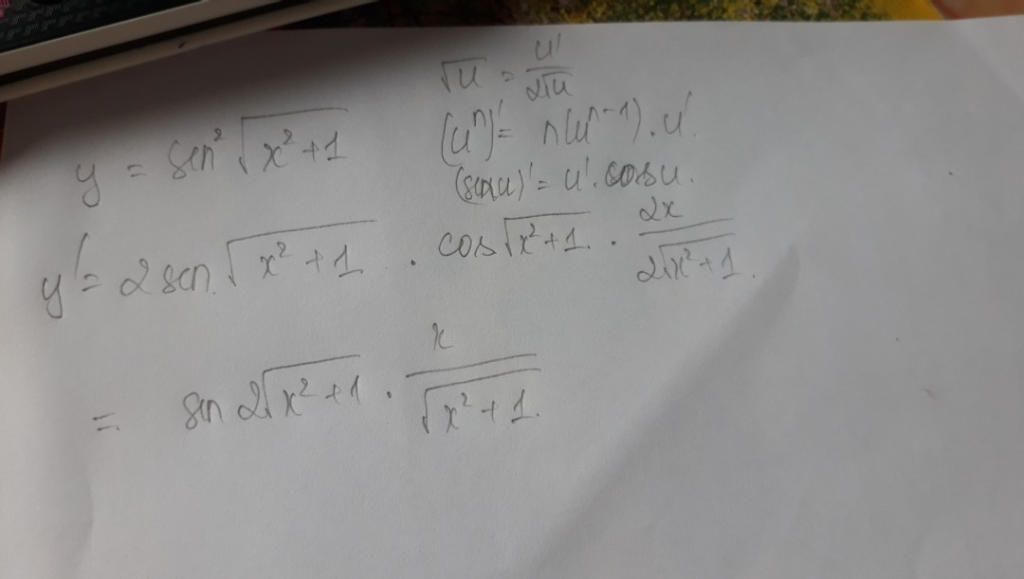 √u = u'/2√u
y = sin² √x²+1
(uⁿ)' = n(uⁿ⁻¹).u'.
(sinu)' = u'.cosu.
y' = 2 sin √x²+1 . cos √x²+1 . 2x/2√x²+1.
= sin 2√x²+1 . x/√x²+1.